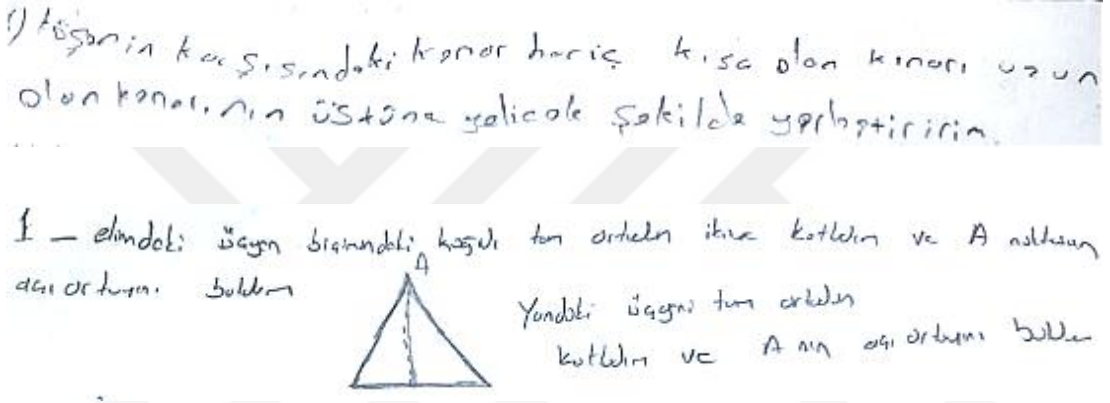 1) Köşenin karşısındaki kenar hariç kısa olan kenarı uzun
olan kenarının üstüne gelicek şekilde yerleştiririm.
1 — elimdeki üçgen biçimindeki kağıdı tam ortadan ikiye katladım ve A noktasının
açı ortayını buldum
A
Yandaki üçgeni tam ortadan
katladım ve A nın açı ortayını buldum